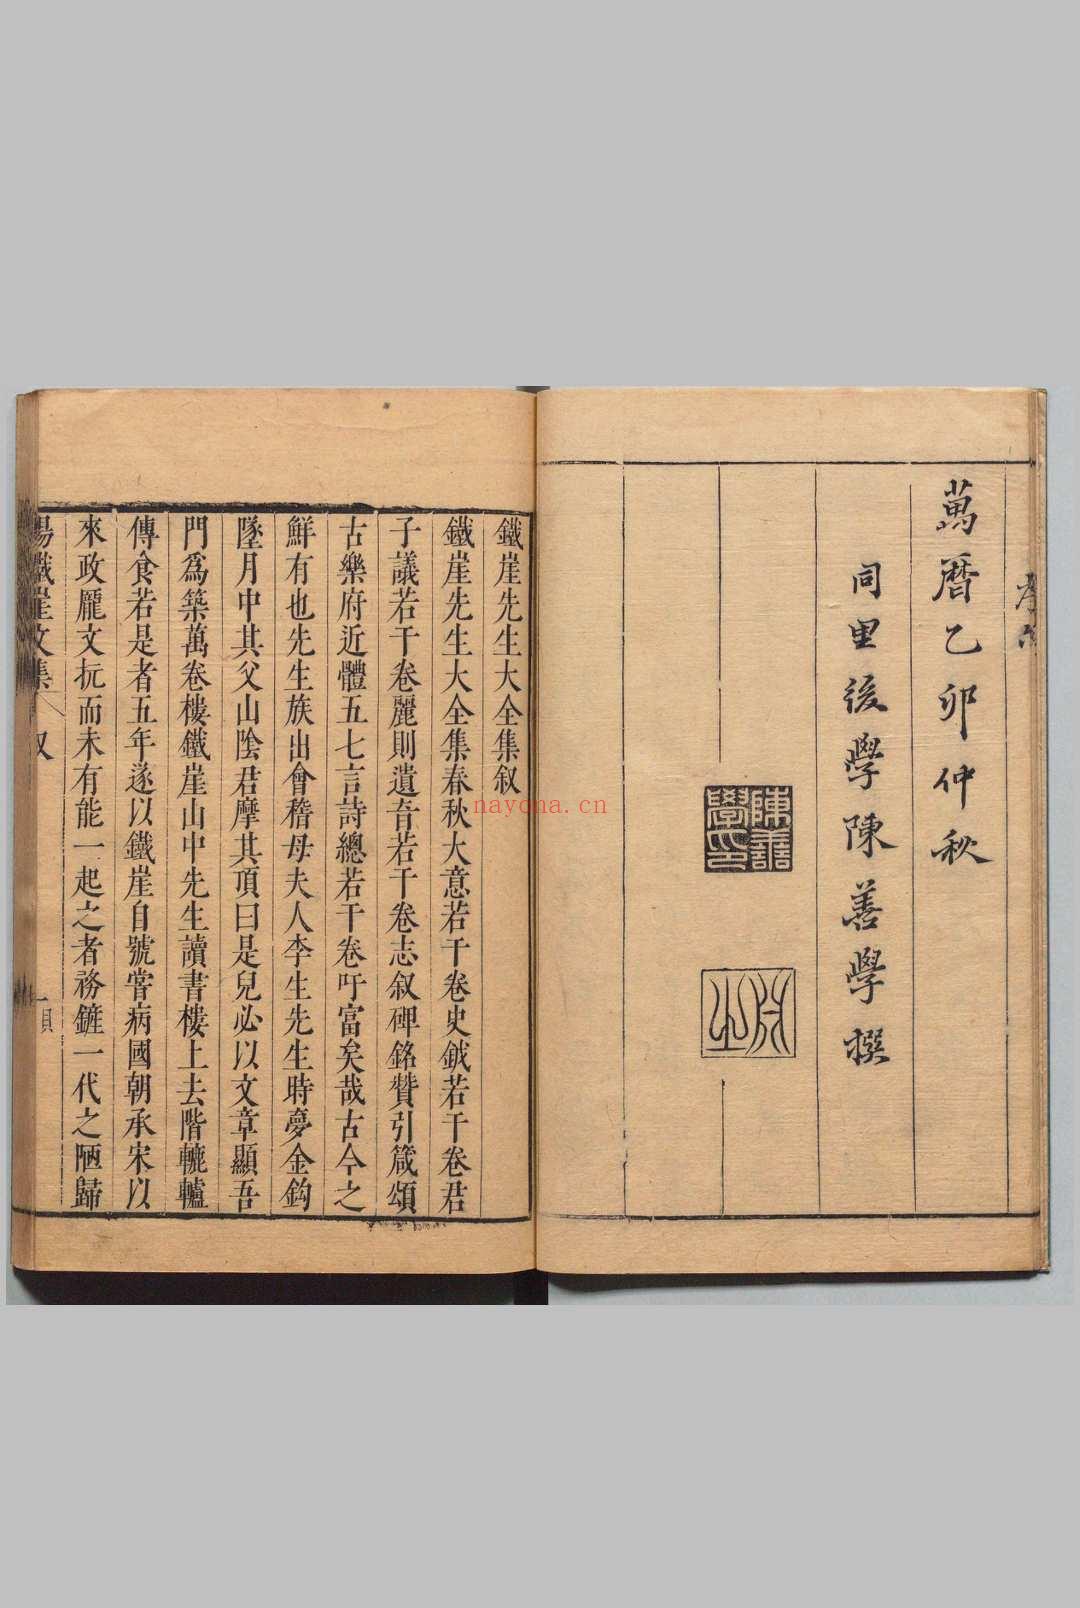 萬曆乙卯仲秋
同里後學陳善學撰
陳善
學印
鐵崖先生大全集叙
鐵崖先生大全集春秋大意若干卷史鉞若干卷君
子議若干卷麗則遺音若干卷志叙碑銘贊引箴頌
古樂府近體五七言詩總若干卷吁富矣哉古今之
鮮有也先生族出會稽母夫人李生先生時夢金鈎
墜月中其父山陰君摩其頂曰是兒必以文章顯吾
門爲築萬卷樓鐵崖山中先生讀書樓上去階轆轤
傳食若是者五年遂以鐵崖自號嘗病國朝承宋以
來政龐文抏而未有能一起之者務鏟一代之陋歸
楊鐵崖文集 叙 一
nayona.cn